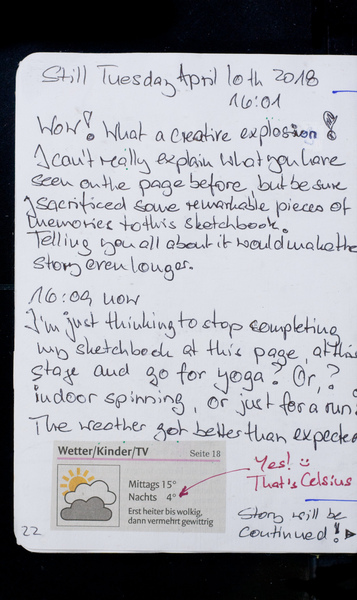 Still Tuesday April 10th 2018
16:01
Wow! What a creative explosion!
I can't really explain what you have
seen on the page before, but be sure
I sacrificed some remarkable pieces of
memories to this sketchbook.
Telling you all about it would make the
story even longer.
16:09 now
I'm just thinking to stop completing
my sketchbook at this page, at this
stage and go for yoga? Or,?
indoor spinning, or just for a run?
The weather got better than expecte
Wetter/Kinder/TV Seite 18
Mittags 15°
Nachts 4°
Erst heiter bis wolkig,
dann vermehrt gewittrig
Yes! :)
That's Celsius
Story will be
continued!
22